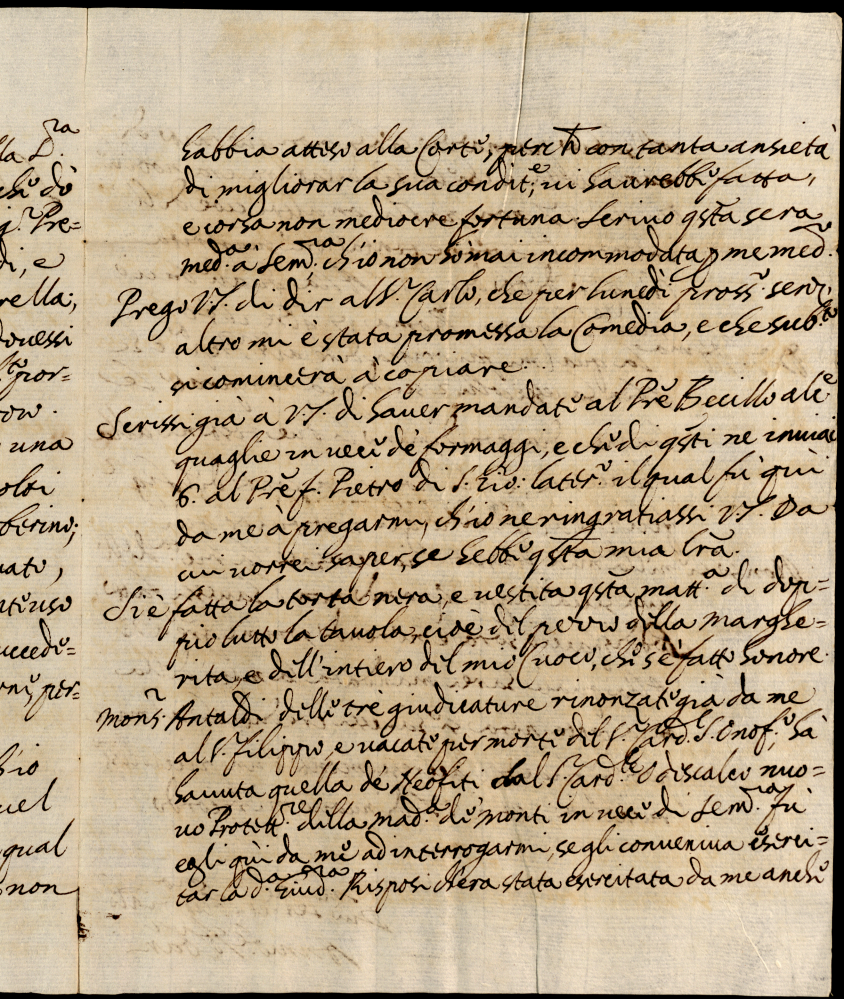 lla D.ra
che dò
g.r Pre=
di, e
rella;
dovessi
por=
una
berino;
uato,
ntruso
uccede=
per=
hio
uel
qual
non
habbia atteso alla Corte, perche con tanta ansietà
di migliorar la sua condit.e, vi haurebbe fatta,
e corsa non mediocre fortuna. Scrivo qsta sera
med.a à Sem.ra, ch'io non hò mai incommodata p me med.
Prego V.S. di dir al S.r Carlo, che per lunedì pross.o senz'
altro mi è stata promessa la Comedia, e che sub.to
si comincerà à copiare.
Scrissi già à V.S. di haver mandate al Prē Becillo alc.e
quaglie in vece de formaggi, e che di qsti ne inviai
6. al Prē f. Pietro di S. Gio: later.o il qual fù quì
da me à pregarmi, ch'io ne ringratiassi V.S. Da
cui vorrei saper, se hebbe qsta mia lrā.
Si è fatta la torta nera, e vestita qsta matt.a di dop=
pio lutto la tavola, cioè del pevere della marghe=
rita, e dell'intiero del mio Cuoco, che s'è fatto honore.
Mons.r Antaldi delle trè giudicature rinonzate già da me
al S.r Filippo, e vacate per morte del S.r Card.l S. Onof.o, hà
hauuta quella de Neofiti dal S.r Card.le Odescalco nuo=
vo Protett.re della Mad.a de monti in vece di Sem.ra Fù
egli quì da me ad interrogarmi, se gli conveniva eserci=
tar la d.a Giud.ra Risposi ch'era stata esercitata da me anche